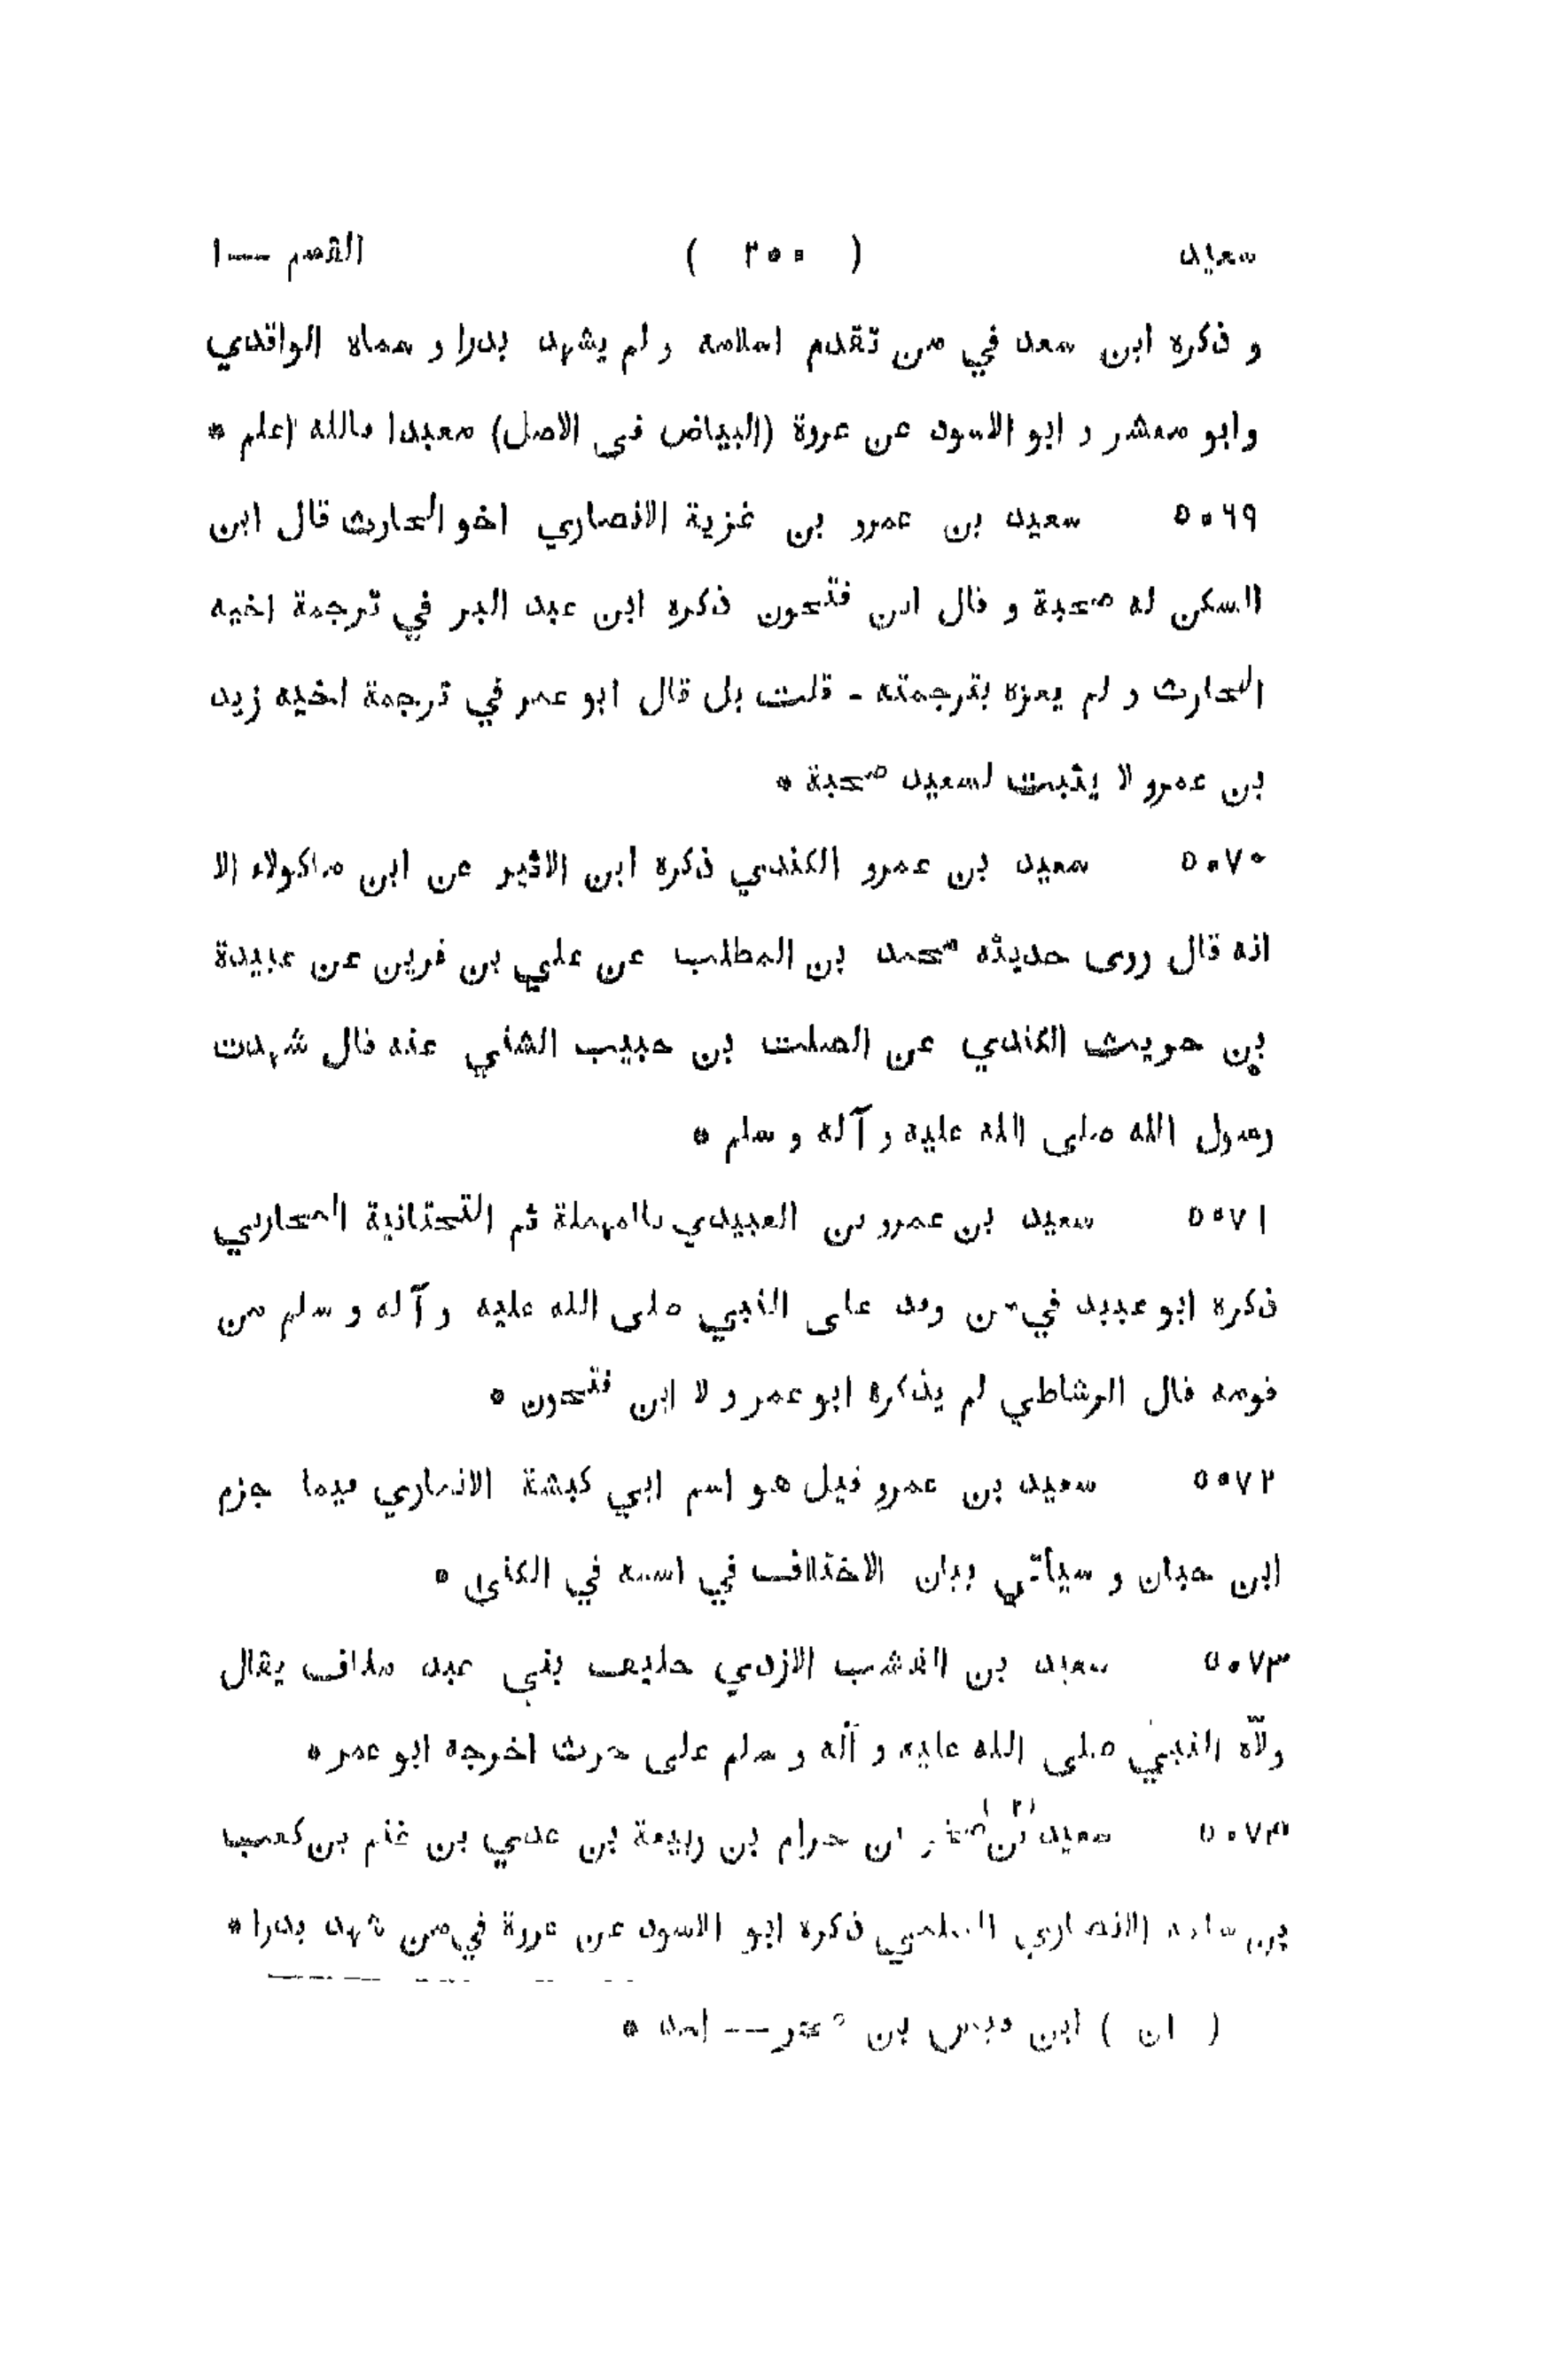 سعيد ( ٢٠٠ ) القسم — ١
و ذكره ابن سعد في من تقدم اسلامه و لم يشهد بدرا و سماه الواقدي
وابو معشر و ابو الاسود عن عروة (البياض فى الاصل) معبدا فالله اعلم *
٥٠٦٩ سعيد بن عمرو بن غزية الانصاري اخو الحارث قال ابن
السكن له صحبة و قال ابن فتحون ذكره ابن عبد البر في ترجمة اخيه
الحارث و لم يعزه بترجمته - قلت بل قال ابو عمر في ترجمة اخيه زيد
بن عمرو لا يثبت لسعيد صحبة *
٥٠٧٠ سعيد بن عمرو الكندي ذكره ابن الاثير عن ابن ماكولاء الا
انه قال روى حديثه محمد بن المطلب عن علي بن قرين عن عبيدة
بن حريث الكندي عن الصلت بن حبيب الشني عنه قال شهدت
رسول الله صلى الله عليه و آله و سلم *
٥٠٧١ سعيد بن عمرو بن العبيدي بالمهملة ثم التحتانية المحاربي
ذكره ابو عبيد في من وفد على النبي صلى الله عليه و آله و سلم من
قومه قال الرشاطي لم يذكره ابو عمر و لا ابن فتحون *
٥٠٧٢ سعيد بن عمرو قيل هو اسم ابي كبشة الانماري فيما جزم
ابن حبان و سيأتي بيان الاختلاف في اسمه في الكنى *
٥٠٧٣ سعيد بن القشب الازدي حليف بني عبد مناف يقال
ولّاه النبي صلى الله عليه و آله و سلم على جرش اخرجه ابو عمر *
٥٠٧٣ سعيد بن (٢) صخر بن حرام بن ربيعة بن عدي بن غنم بن كعب
بن سلمة الانصاري السلمي ذكره ابو الاسود عن عروة في من شهد بدرا *
( ان ) ابن قيس بن صخر — اسد *